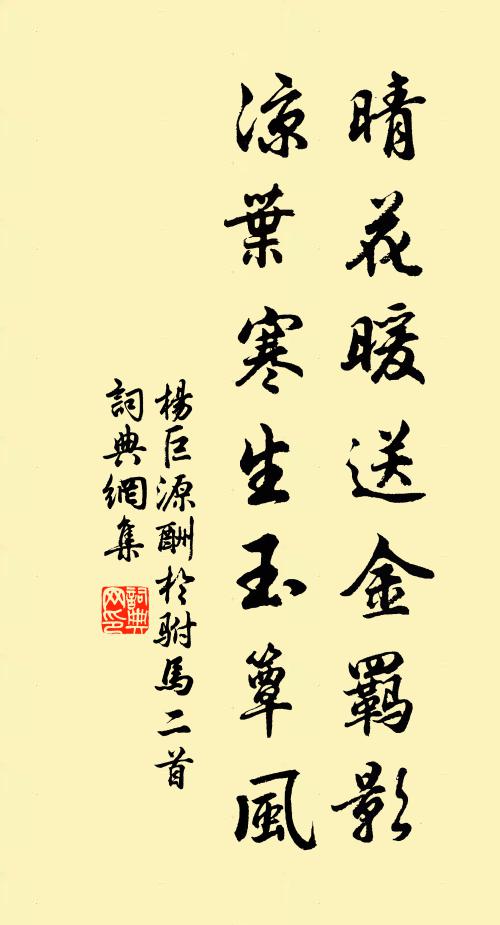 晴花暖送金羈影
涼葉寒生玉簟風
楊巨源酬於駙馬二首
詞典網集
詞典网印